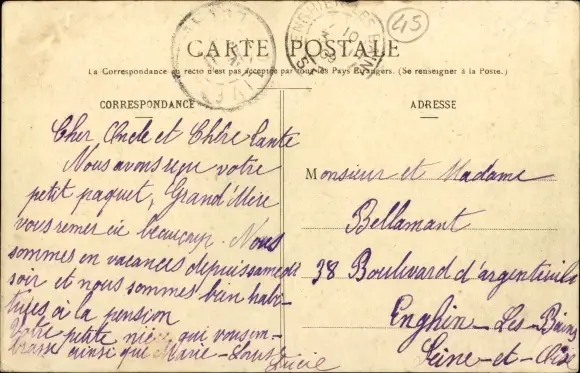 45
CARTE POSTALE
La Correspondance au recto n'est pas acceptée par tous les Pays Étrangers. (Se renseigner à la Poste.)
CORRESPONDANCE
Cher Oncle et Chère Tante
Nous avons reçu votre
petit paquet, Grand'Mère
vous remercie beaucoup. Nous
sommes en vacances depuis samedi
soir et nous sommes bien habi-
tuées à la pension
Votre petite nièce qui vous em-
brasse ainsi que Marie-Louise
Lucie
ADRESSE
Monsieur et Madame
Bellamant
38 Boulevard d'argenteuils
Enghien-Les-Bains
Seine-et-Oise